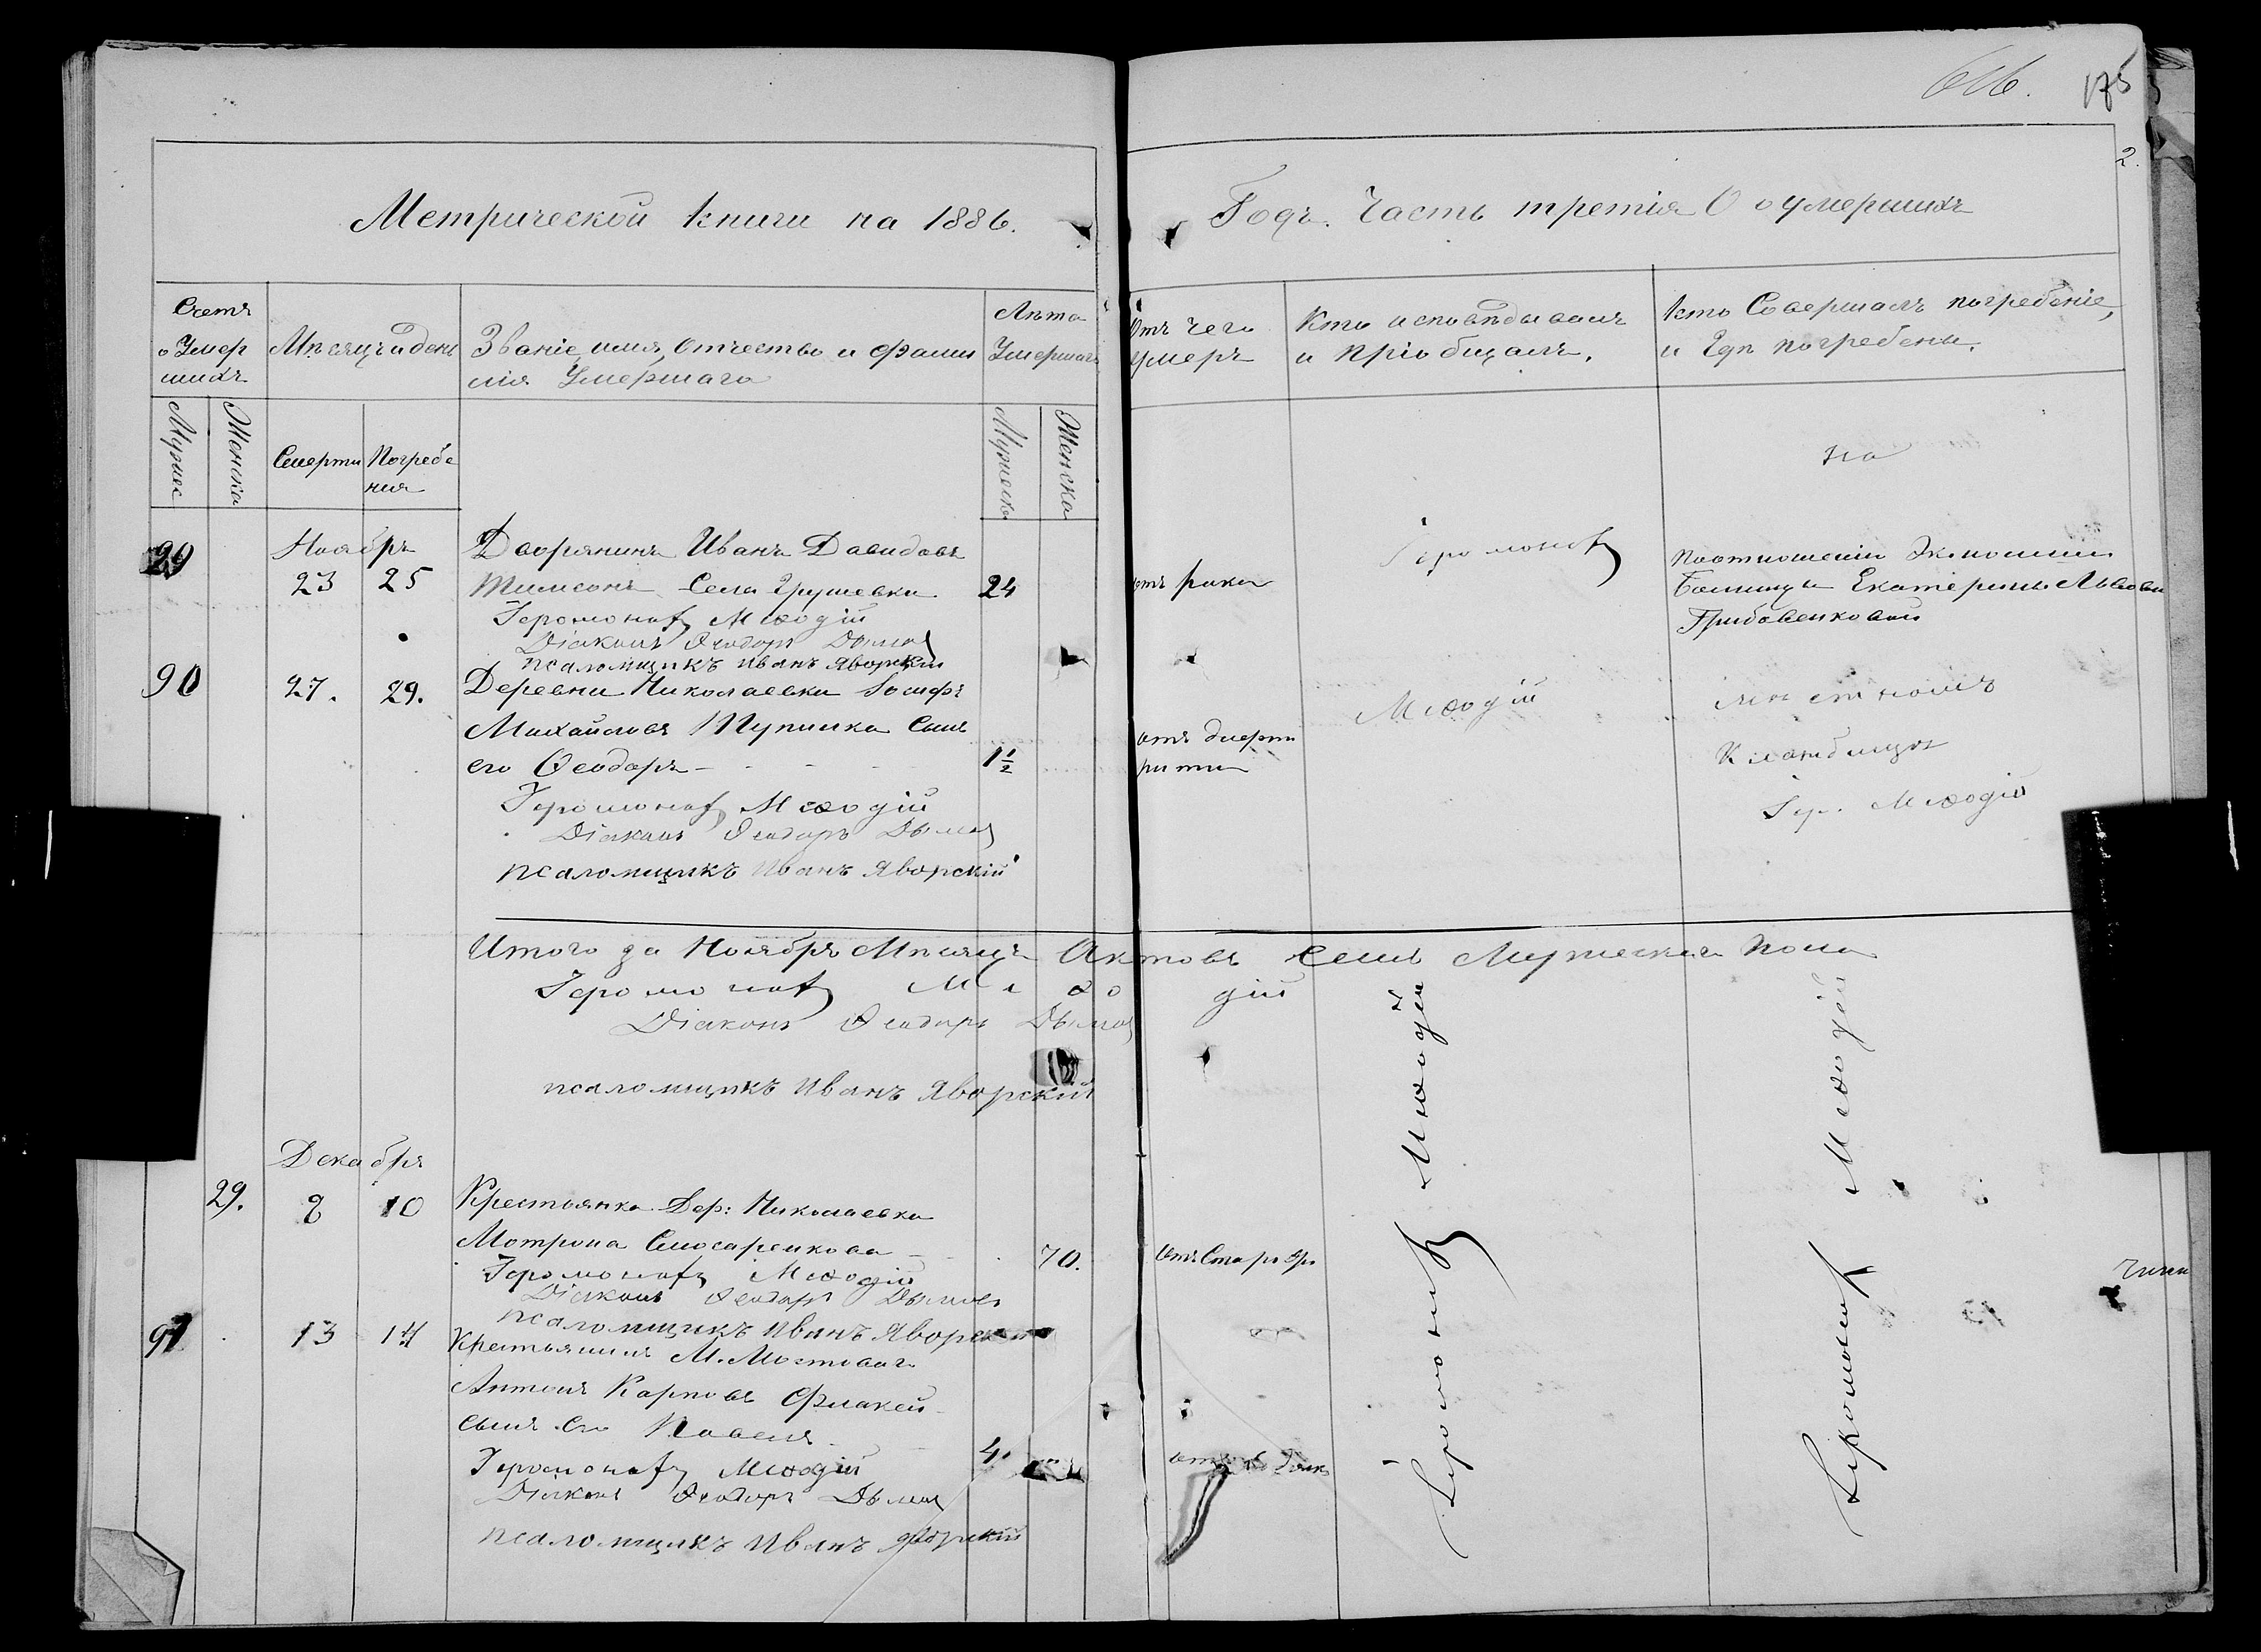 616. 175
2.
Метрической книги на 1886.
Годъ. Часть третія О умершихъ
Счетъ
умер
шихъ
Мѣсяцъ и день
Званіе, имя, отчество и фами
лія Умершаго
Лѣта
Умершаго
Отъ чего
умеръ
Кто исповѣдывалъ
и пріобщалъ.
Кто Совершалъ погребеніе,
и Гдѣ погребены.
Мужес
Женска
Смерти
Погребе
нія
Мужеска
Женска
На
89
Ноябрь
23 25
Дворянинъ Иванъ Давидовъ
Села Грушевки 24
Іеромонахъ Меѳодій
Діаконъ Ѳеодоръ
псаломщикъ Иванъ Яворскій
Іеромонахъ
По отношенію Экономіи
Екатерины Львовны
90
27. 29.
Деревни Николаевки Іосифъ
Михайловъ сынъ
его Ѳеодоръ - - - - 1 1/2
отъ
Меѳодій
мѣстномъ
Кладбищѣ
Іер. Меѳодій
Іеромонахъ Меѳодій
Діаконъ Ѳеодоръ
псаломщикъ Иванъ Яворскій
Итого за Ноябрь Мѣсяцъ Актовъ Семь Мужескаго пола
Іеромонахъ Меѳодій
Діаконъ Ѳеодоръ
псаломщикъ Иванъ Яворскій
Декабрь
29. 8 10
Крестьянка Дер: Николаевки
Мотрона Слюсаренкова 70.
отъ Старости
Іеромонахъ Меѳодій
Діаконъ Ѳеодоръ
псаломщикъ Иванъ Яворскій
91 13 14
Крестьянинъ М. Мостоваго
Антонъ Карповъ
сынъ его Павелъ 4.
Іеромонахъ Меѳодій
Діаконъ Ѳеодоръ
псаломщикъ Иванъ Яворскій
Іеромонахъ Меѳодій
Іеромонахъ Меѳодій